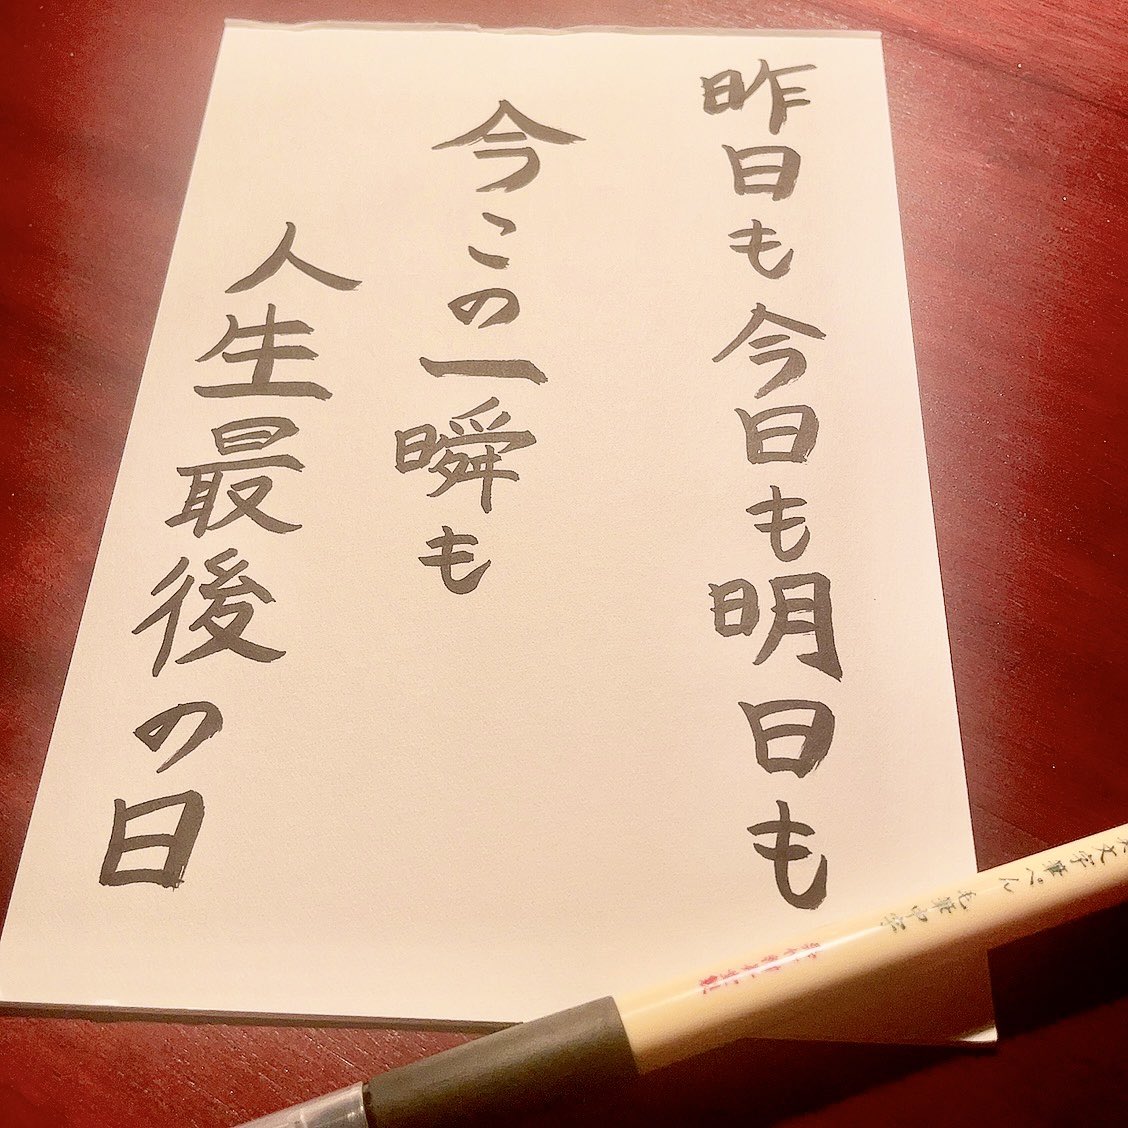 昨日も今日も明日も
今この一瞬も
人生最後の日
文字筆ぺん 毛筆中字